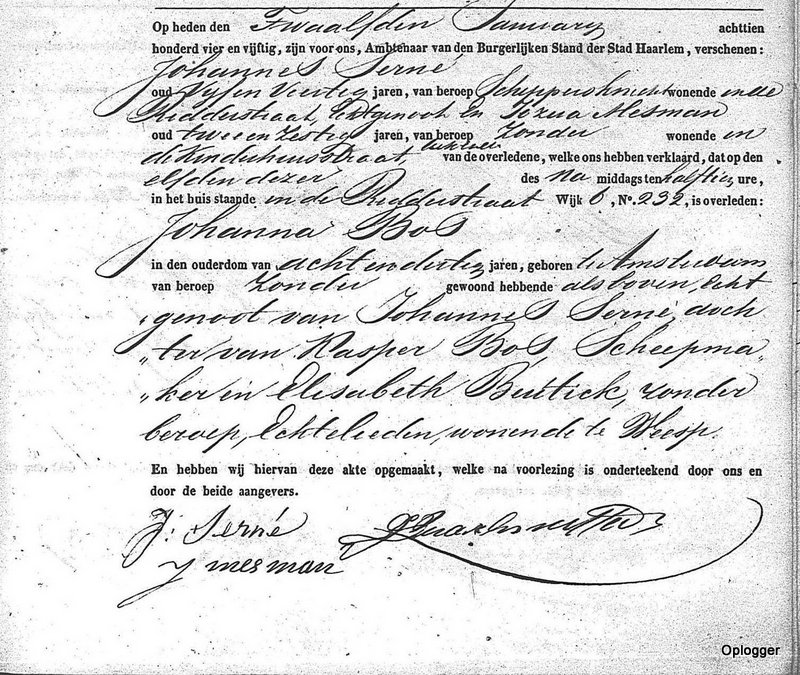 Op heden den Twaalfden Januarij achttien
honderd vier en vijftig, zijn voor ons, Ambtenaar van den Burgerlijken Stand der Stad Haarlem, verschenen:
Johannes Serné
oud Vijf en Veertig jaren, van beroep Schippersknecht wonende in de
Ridderstraat, Echtgenoot En Jozua Mesman
oud twee en Zestig jaren, van beroep Zonder wonende in
de Kinderhuisstraat, bekende van de overledene, welke ons hebben verklaard, dat op den
elfden dezer des na middags ten half tien ure,
in het huis staande in de Ridderstraat Wijk 6, No. 232, is overleden:
Johanna Bos
in den ouderdom van acht en dertig jaren, geboren te Amsterdam
van beroep Zonder gewoond hebbende als boven, Echt
genoot van Johannes Serné, doch
„ter van Kasper Bos, Scheepma„
„ker en Elisabeth Buitick, zonder
beroep, Echtelieden, wonende te Weesp.
En hebben wij hiervan deze akte opgemaakt, welke na voorlezing is onderteekend door ons en
door de beide aangevers.
J: Serné
J mesman
Oplogger